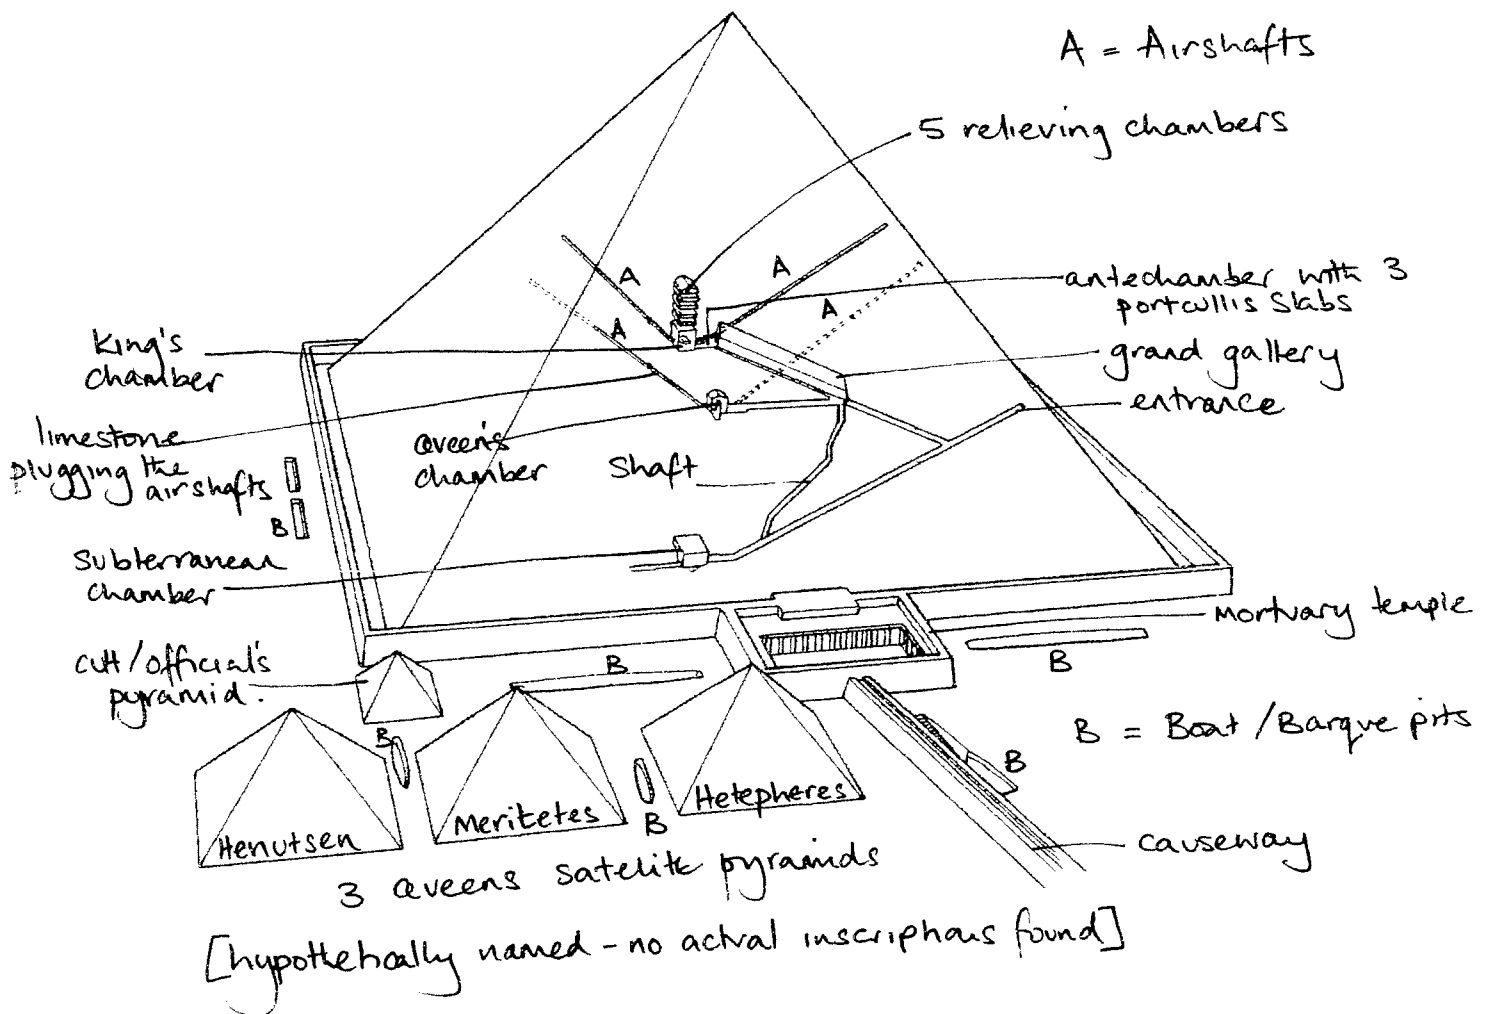 A = Airshafts
5 relieving chambers
A
A
A
A
antechamber with 3
portcullis Slabs
King's
chamber
grand gallery
entrance
limestone
plugging the
airshafts
queen's
chamber
Shaft
B
Subterranean
chamber
mortuary temple
cult/official's
pyramid.
B
B
B = Boat/Barque pits
B
B
B
Henutsen
Meritetes
Hetepheres
causeway
3 queens satelite pyramids
[hypothetically named - no actual inscriptions found]